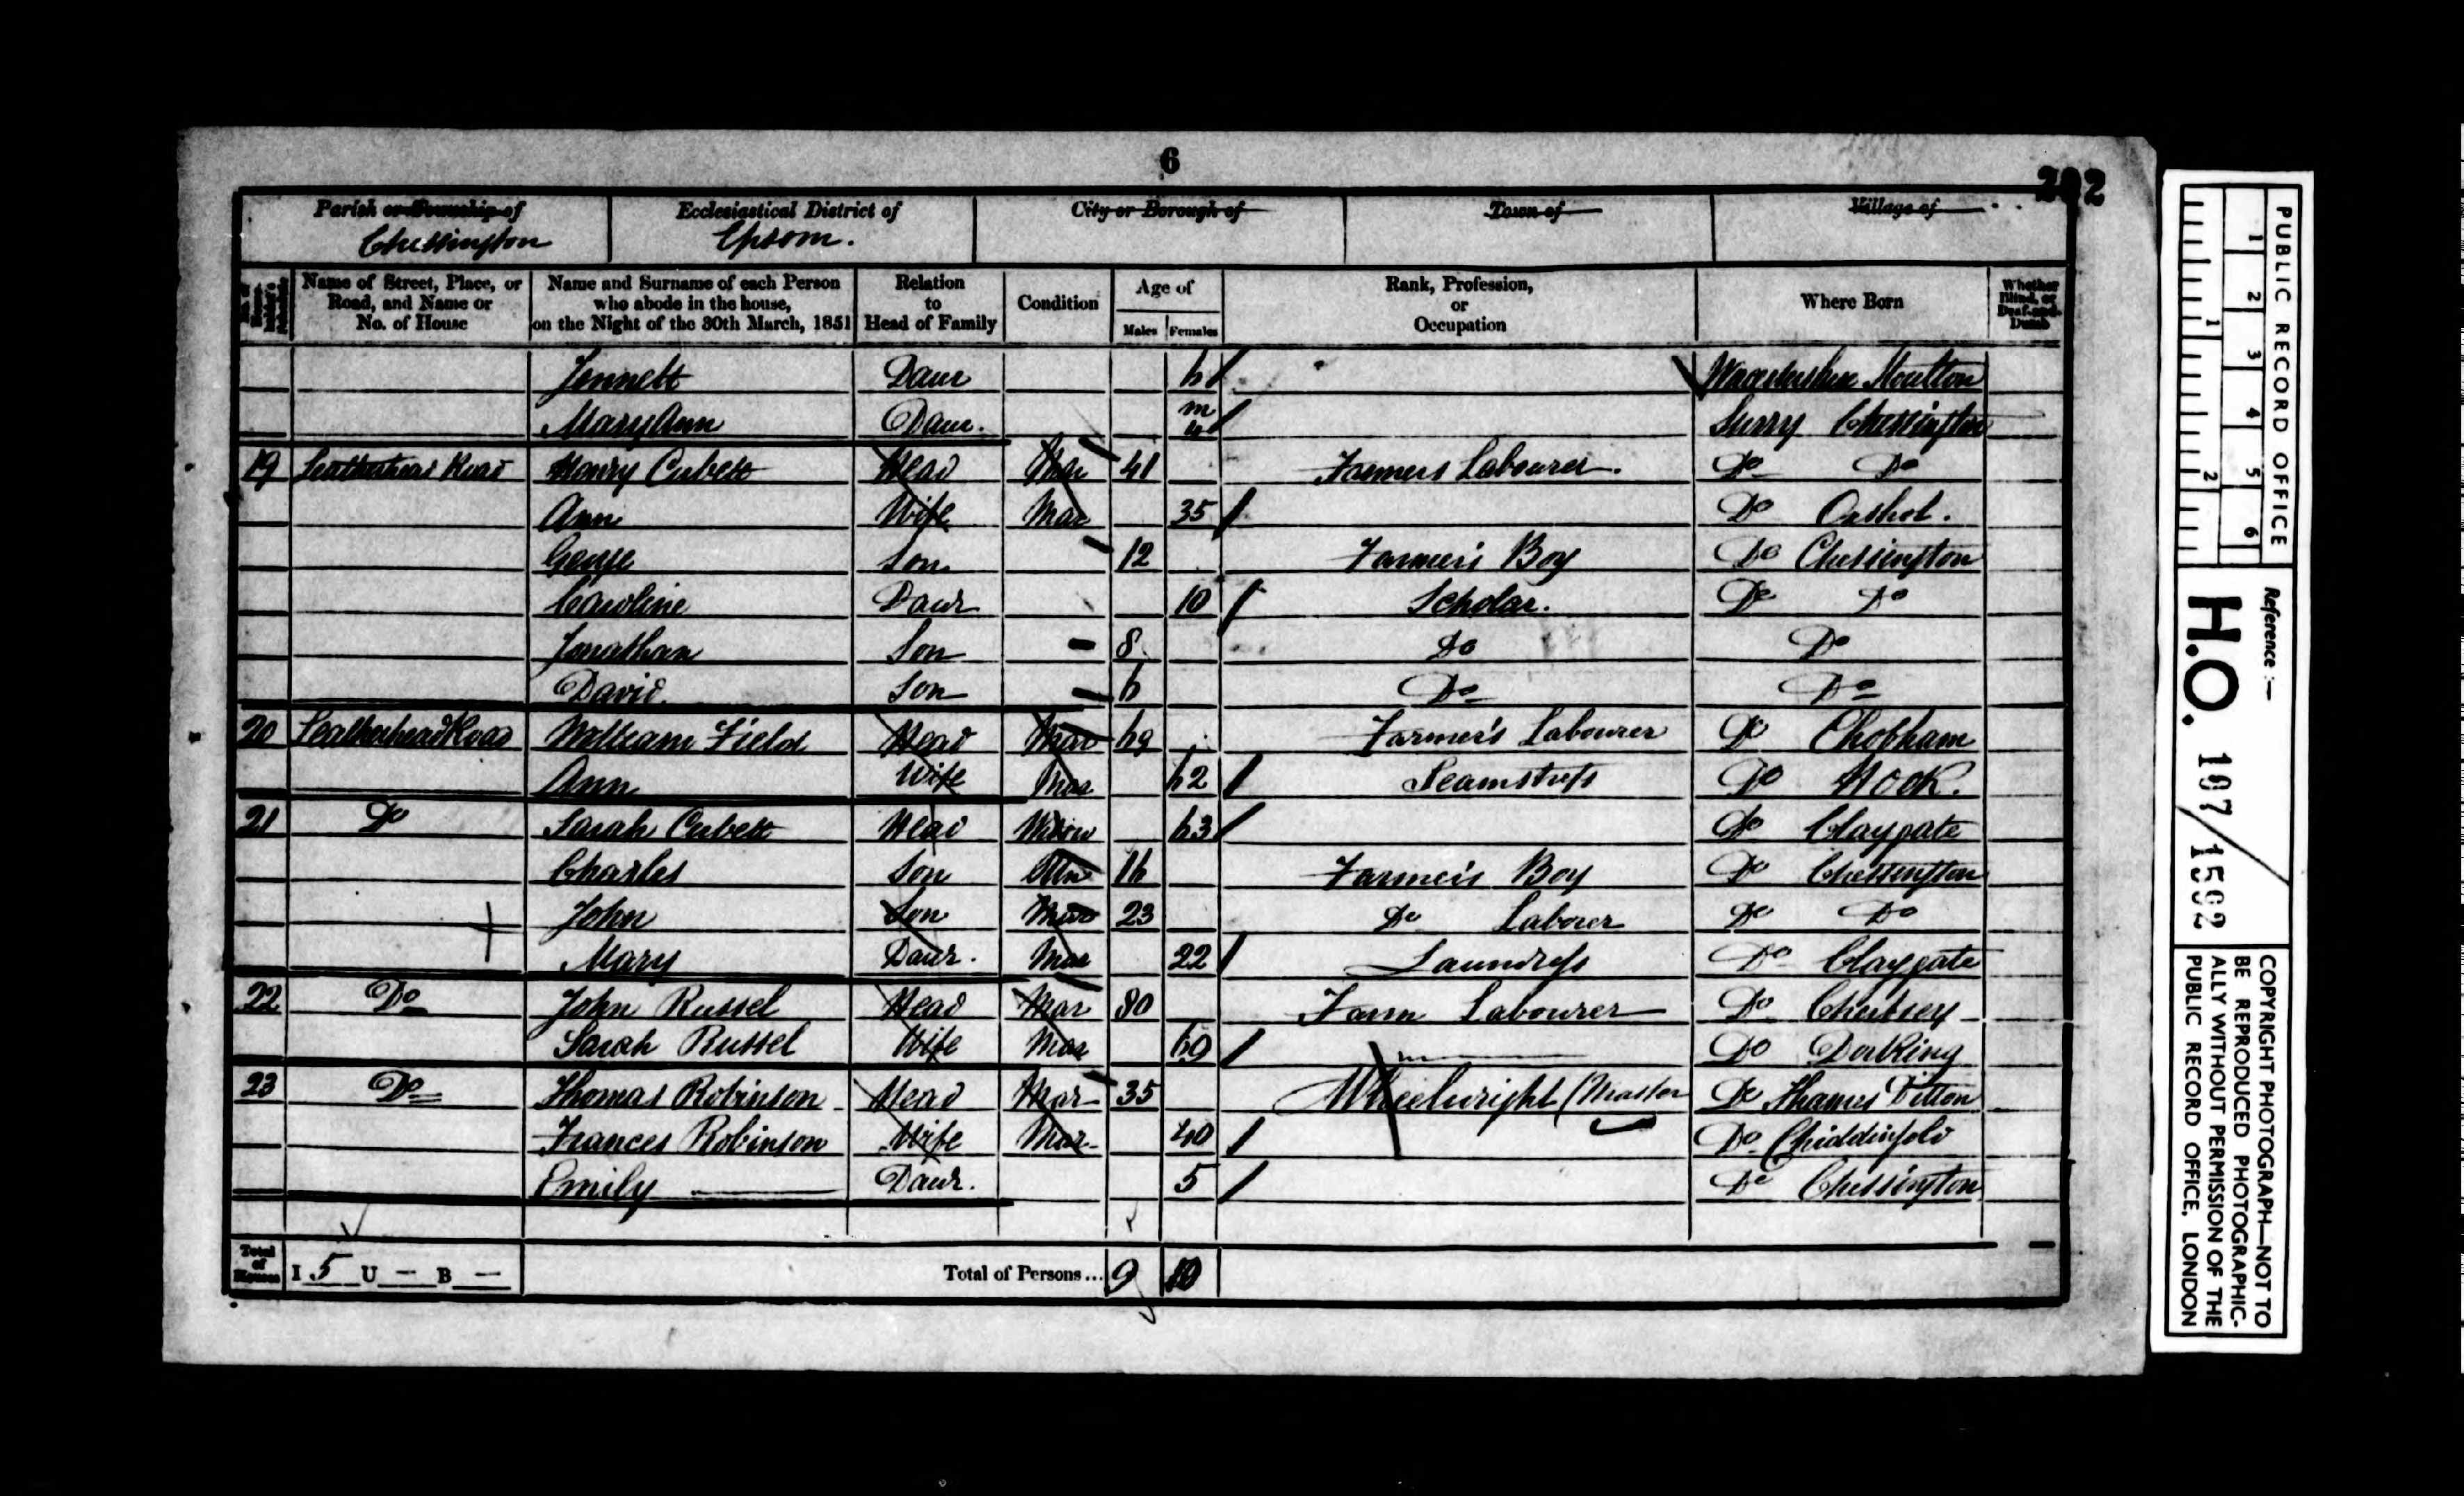 6
202
Parish or Township of Ecclesiastical District of City or Borough of Town of Village of
Chessington Epsom.
Name of Street, Place, or Road, and Name or No. of House
Name and Surname of each Person who abode in the house, on the Night of the 30th March, 1851
Relation to Head of Family
Condition
Age of
Males Females
Rank, Profession, or Occupation
Where Born
Whether Blind, or Deaf-and-Dumb
Jennett Daur 6
Mary Ann Daur. m Surry Chessington
19 Leatherhead Road Henry Cubett Head Mar 41 Farmers Labourer. Do Do
Ann Wife Mar 35 Do Oxshot.
George Son 12 Farmer's Boy Do Chessington
Caroline Daur 10 Scholar. Do Do
Jonathan Son 8 Do Do
David. Son 6 Do Do
20 Leatherhead Road William Field Head Mar 69 Farmer's Labourer Do Chobham
Ann Wife Mar 62 Seamstress Do Hook.
21 Do Sarah Cubett Head Widow 63 Do Claygate
Charles Son Un 16 Farmer's Boy Do Chessington
John Son Mar 23 Do Labourer Do Do
Mary Daur. Mar 22 Laundress Do Claygate
22 Do John Russel Head Mar 80 Farm Labourer Do Chertsey
Sarah Russel Wife Mar 60 Do Dorking
23 Do Thomas Robinson Head Mar 35 Wheelwright (Master Do Thames Ditton
Frances Robinson Wife Mar 40 Do Chiddinfold
Emily Daur. 5 Do Chessington
Total of Houses I 5 U – B – Total of Persons... 9 10
PUBLIC RECORD OFFICE
1 2 3 4 5 6
1 2
Reference :–
H.O. 107/1592
COPYRIGHT PHOTOGRAPH—NOT TO
BE REPRODUCED PHOTOGRAPHIC-
ALLY WITHOUT PERMISSION OF THE
PUBLIC RECORD OFFICE, LONDON